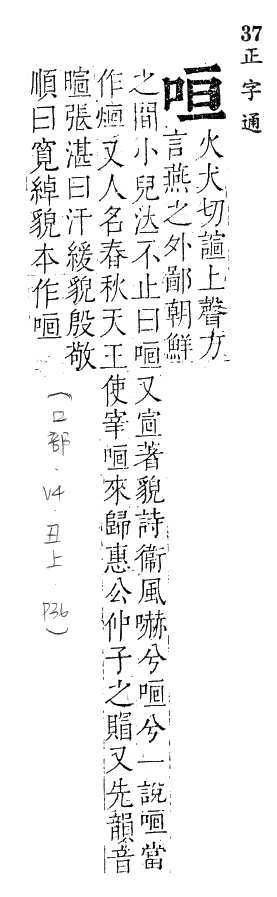 37
正字通
咺
火犬切諠上聲方
言燕之外鄙朝鮮
之間小兒泣不止曰咺又宣著貌詩衞風嚇兮咺兮一說咺當
作烜又人名春秋天王使宰咺來歸惠公仲子之賵又先韻音
暄張湛曰汗緩貌殷敬
順曰寬綽貌本作咺
(口部.V4.丑上.P36)